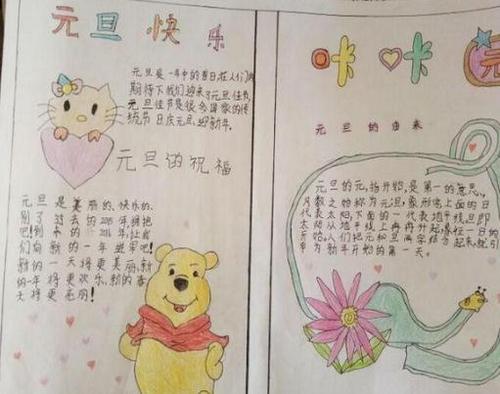 元旦快乐
元旦是一年中的首日,在人们的
期待下我们迎来了元旦佳节,
元旦佳节是很多国家的传
统节日庆元旦,迎新年。
元旦的祝福
元旦是美丽的、快乐的、
别了过去的2015年,拥抱
吧!到来的2016年,让我
们向新的一年进军吧!
新的一天将更美丽,新
的一年将更欢乐,新的春
天将更亮丽!
咔咔元
元旦的由来
元旦的元,指开始,是第一的意思。
月数之始称为元旦,象形字上面的日
代表太阳,下面的一代表地平线旦即
太阳从地平线上冉冉升起,
为新年开始的第一天。